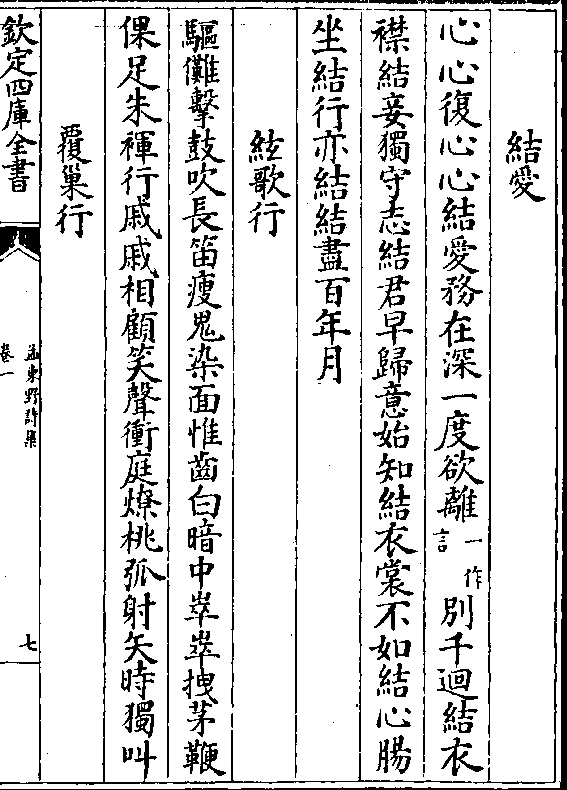 結愛
心心復心心結愛務在深一度欲離一作言別千迴結衣
襟結妾獨守志結君早歸意始知結衣裳不如結心腸
坐結行亦結結盡百年月
絃歌行
驅儺擊鼓吹長笛瘦鬼染面惟齒白暗中崒崒拽茅鞭
倮足朱褌行戚戚相顧笑聲衝庭燎桃弧射矢時獨叫
覆巢行
欽定四庫全書
孟東野詩集
卷一
七